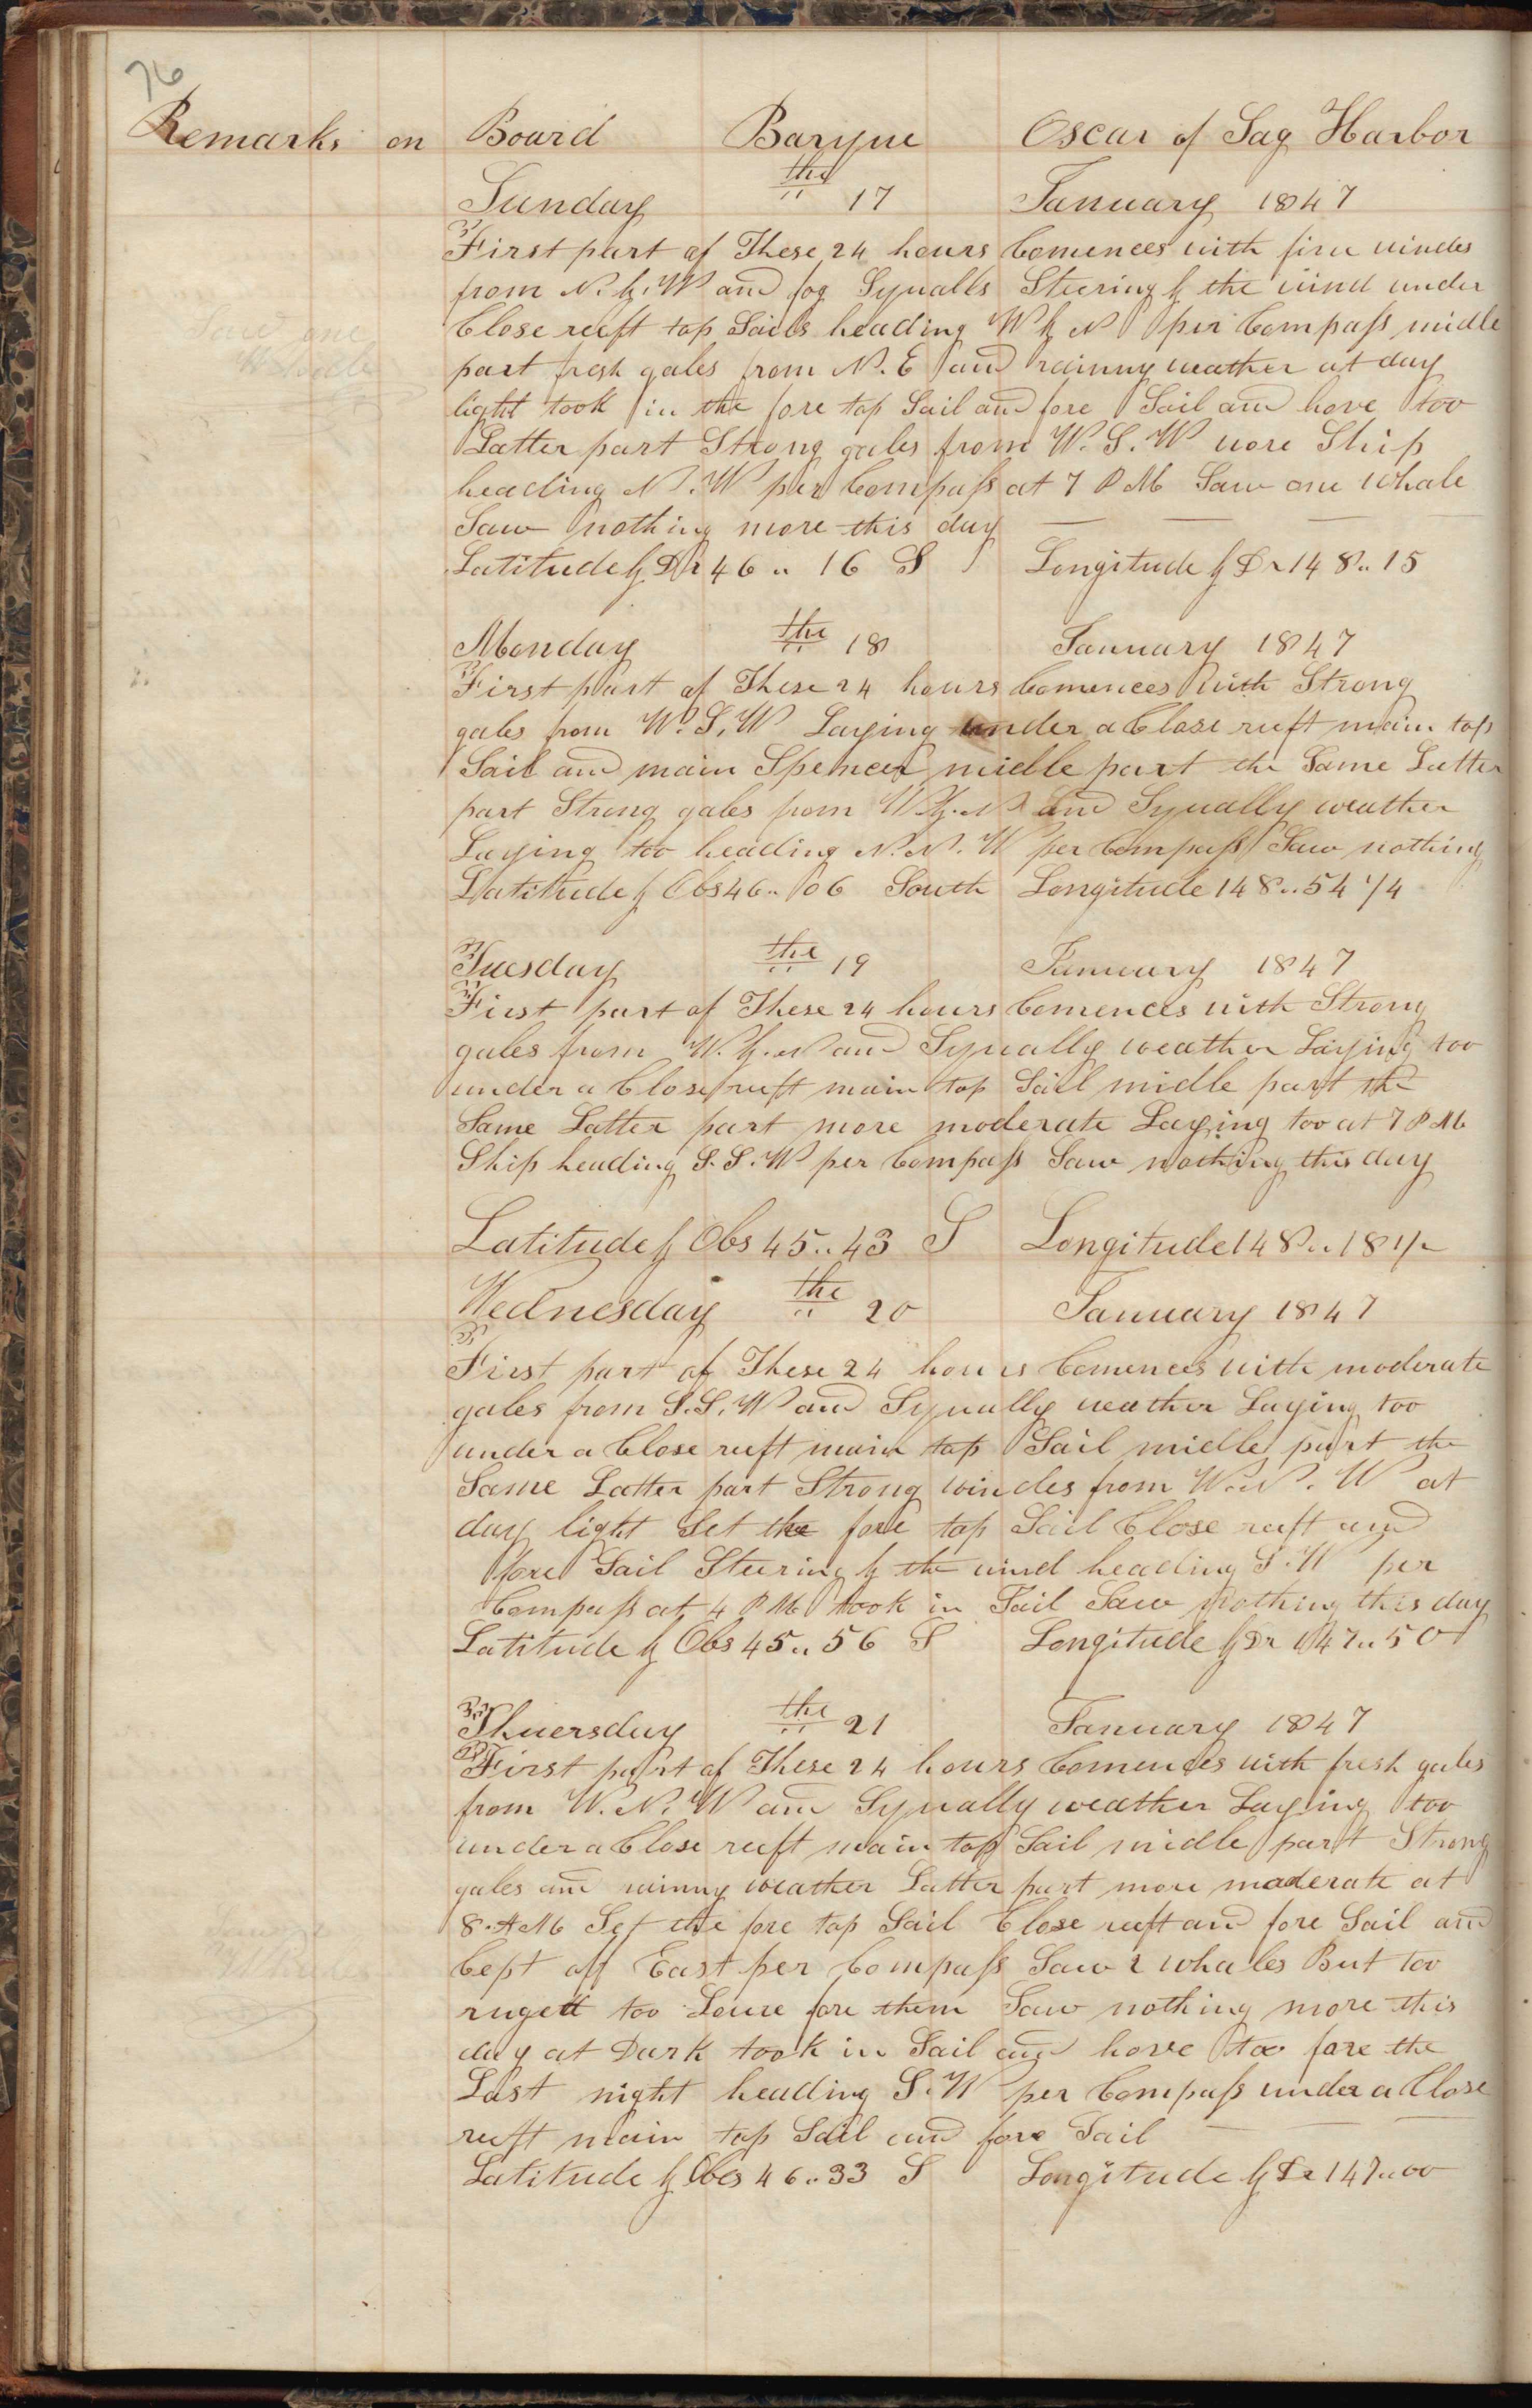 76
Remarks on Board Barque Oscar of Sag Harbor
Sunday the 17 January 1847
First part of These 24 hours Comences with fine windes
from N. by. W and fog Squalls Steering by the wind under
Close reeft top Sails heading W by N per Compass midle
part fresh gales from N. E and rainny weather at day
light took in the fore top Sail and fore Sail and hove too
Latter part Strong gales from W. S. W wore Ship
heading N. W per Compass at 7 P M Saw one whale
Saw nothing more this day
Latitude by Dr 46 .. 16 S Longitude by Dr 148 .. 15
Saw one
Whale
Monday the 18 January 1847
First part of These 24 hours Comences with Strong
gales from W. S. W Laying under a Close reeft main top
Sail and main Spencer midle part the Same Latter
part Strong gales from W. by. N and Squally weather
Laying too heading N. N. W per Compass Saw nothing
Latitude by Obs 46 .. 06 South Longitude 148 .. 54 1/4
Tuesday the 19 January 1847
First part of These 24 hours Comences with Strong
gales from W. by. N and Squally weather Laying too
under a Close reeft main top Sail midle part the
Same Latter part more moderate Laying too at 7 P M
Ship heading S. S. W per Compass Saw nothing this day
Latitude by Obs 45 .. 43 S Longitude 148 .. 18 1/2
Wednesday the 20 January 1847
First part of These 24 hours Comences with moderate
gales from S. S. W and Squally weather Laying too
under a Close reeft main top Sail midle part the
Same Latter part Strong windes from W. N. W at
day light Set the fore top Sail Close reeft and
fore Sail Steering by the wind heading S. W per
Compass at 4 P M took in Sail Saw nothing this day
Latitude by Obs 45 .. 56 S Longitude by Dr 147 .. 50
Thuersday the 21 January 1847
First part of These 24 hours Comences with fresh gales
from W. N. W and Squally weather Laying too
under a Close reeft main top Sail midle part Strong
gales and rainny weather Latter part more moderate at
8 A M Set the fore top Sail Close reeft and fore Sail and
Cept off East per Compass Saw 2 whales But too
ruged too Lowe fore them Saw nothing more this
day at Dark took in Sail and hove too fore the
Last night heading S. W per Compass under a Close
reeft main top Sail and fore Sail
Latitude by Obs 46 .. 33 S Longitude by Dr 147 .. 00